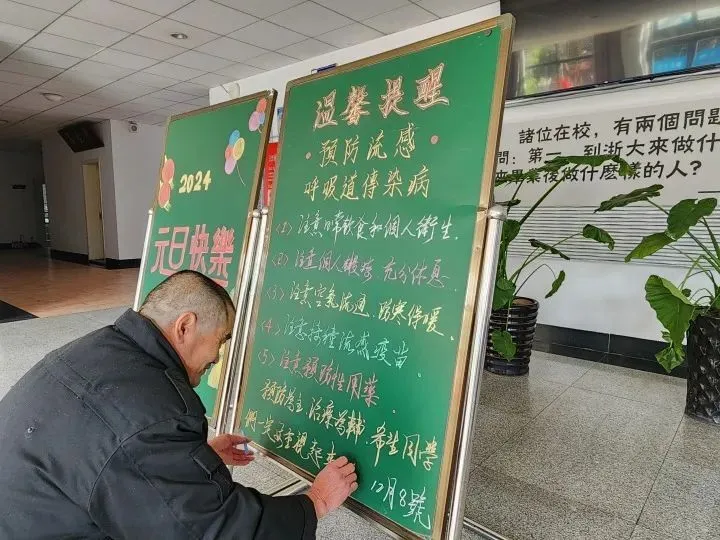 2024
元日快樂
溫馨提醒
·預防流感·
呼吸道傳染病
(1) 注意日常飲食和個人衛生.
(2) 注意個人鍛煉 充分休息
(3) 注意空氣流通，防寒保暖.
(4) 注意接種流感疫苗.
(5) 注意預防性用藥.
預防為主 治療為輔.希望同學
們一定要重視起來
12月8號
諸位在校，有兩個問題
問：第一，到浙大來做什
畢業後做什麽樣的人？